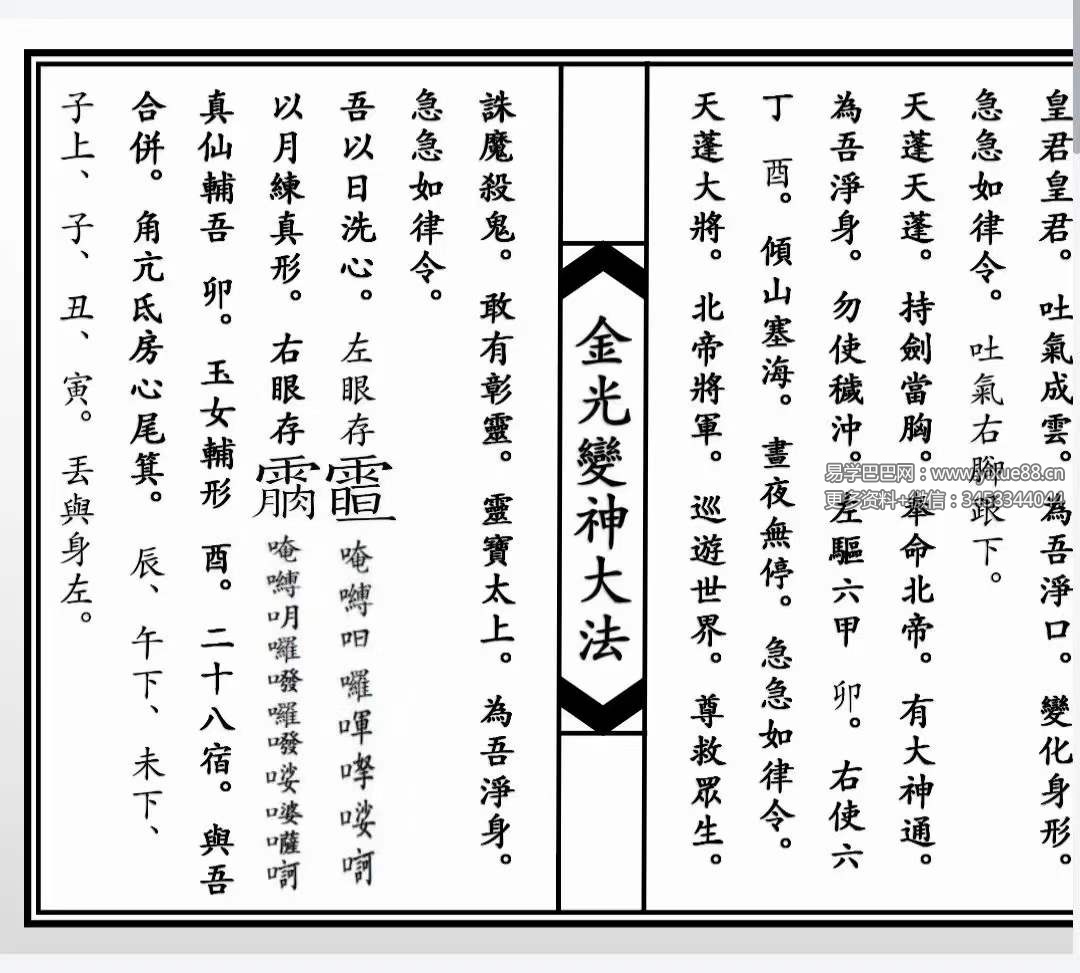 皇君皇君。吐氣成雲。為吾淨口。變化身形。
急急如律令。吐氣右腳跟下。
天蓬天蓬。持劍當胸。奉命北帝。有大神通。
為吾淨身。勿使穢沖。左驅六甲 卯。右使六
丁 酉。傾山塞海。晝夜無停。急急如律令。
天蓬大將。北帝將軍。巡遊世界。尊救眾生。
金光變神大法
誅魔殺鬼。敢有彰靈。靈寶太上。為吾淨身。
急急如律令。
吾以日洗心。左眼存 唵嚩 囉
以月練真形。右眼存 唵嚩 囉 囉
真仙輔吾 卯。玉女輔形 酉。二十八宿。與吾
合併。角亢氐房心尾箕。辰、午下、未下、
子上、子、丑、寅。丟與身左。
易学巴巴网：www.yixue88.cn
更多资料+微信：3453344044